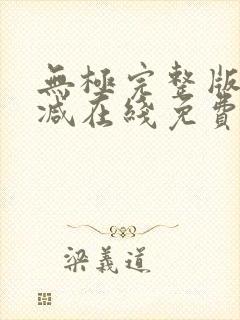 無極完整版
減在綫免費
梁義道